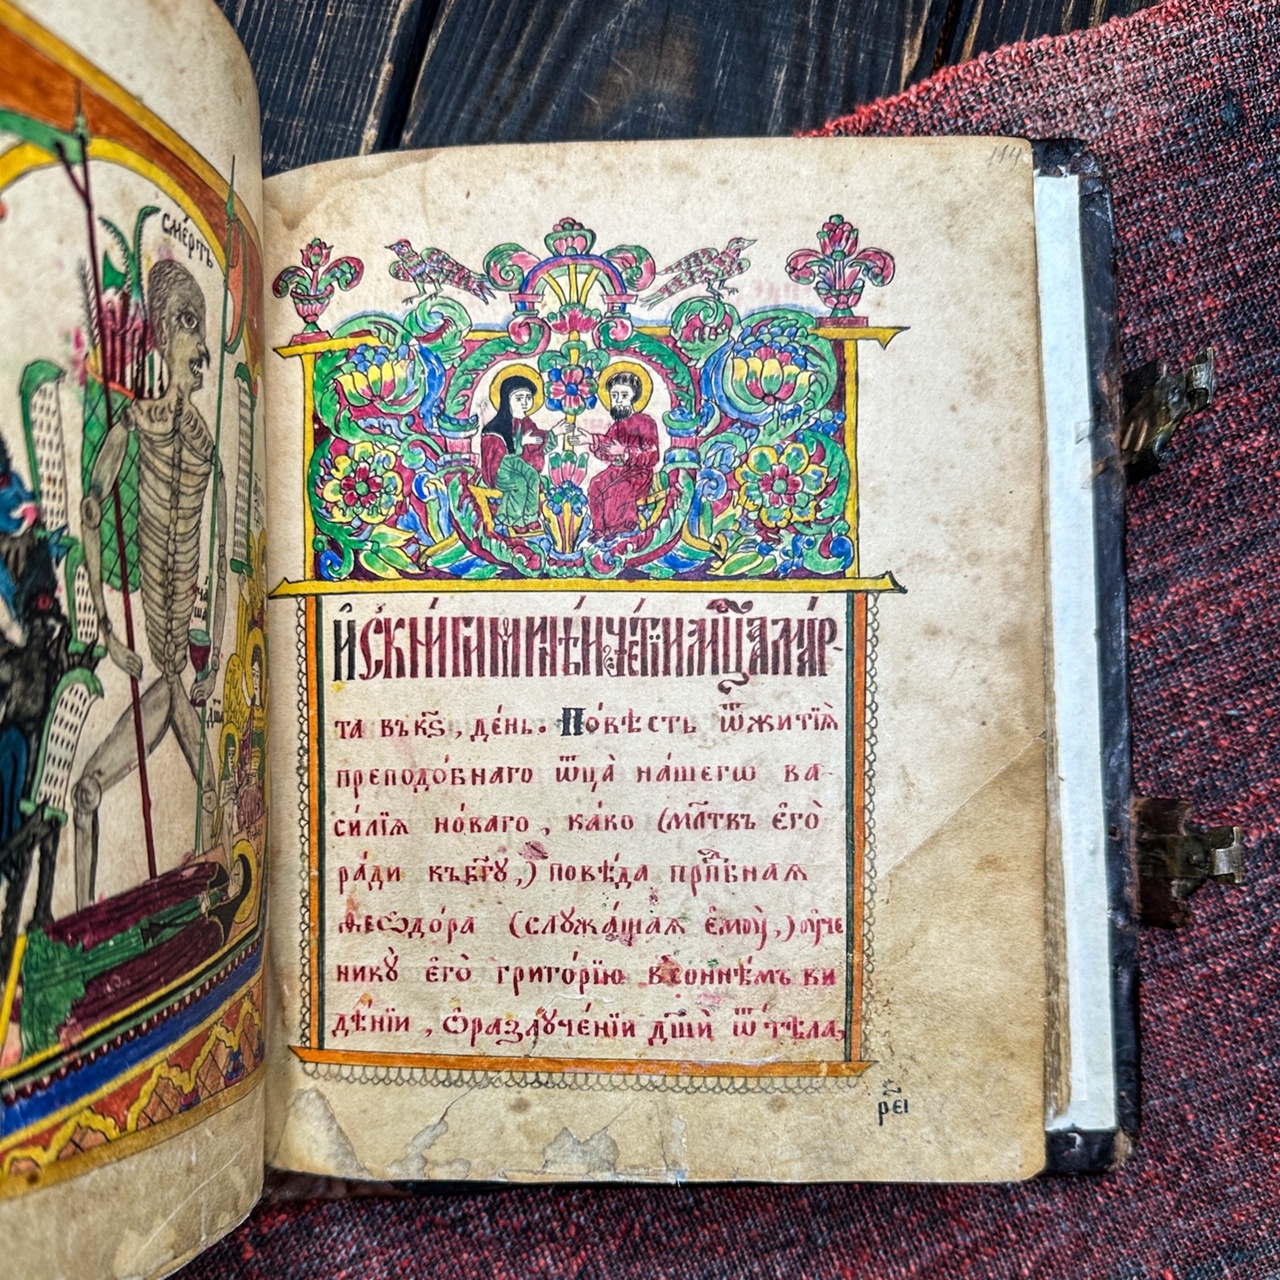 смéрть
114
И҆ С̾ КНИ́ГИ МИНѢ́И ЧЕ́ТІИ МЦ҃А МА́Р-
та въ к҃ѕ , де́нь. По́вѣсть ѿ житїѧ̀
преподо́бнаго ѻ҆ц҃а̀ на́шегѡ ва-
си́лїѧ но́ваго , ка́ко (мл҃твъ є҆гѡ̀
ра́ди къ бг҃ꙋ,) повѣ́да прпⷣбнаѧ
ѳеѡдо́ра (слꙋжа́щаѧ є҆мꙋ̀,) оу҆че
никꙋ̀ є҆го̀ григо́рїю в̾ со́ннѣмъ ви
дѣ́нїи , ѡ҆ разлꙋче́нїи дш҃ѝ ѿ тѣ́ла,
р҃еі